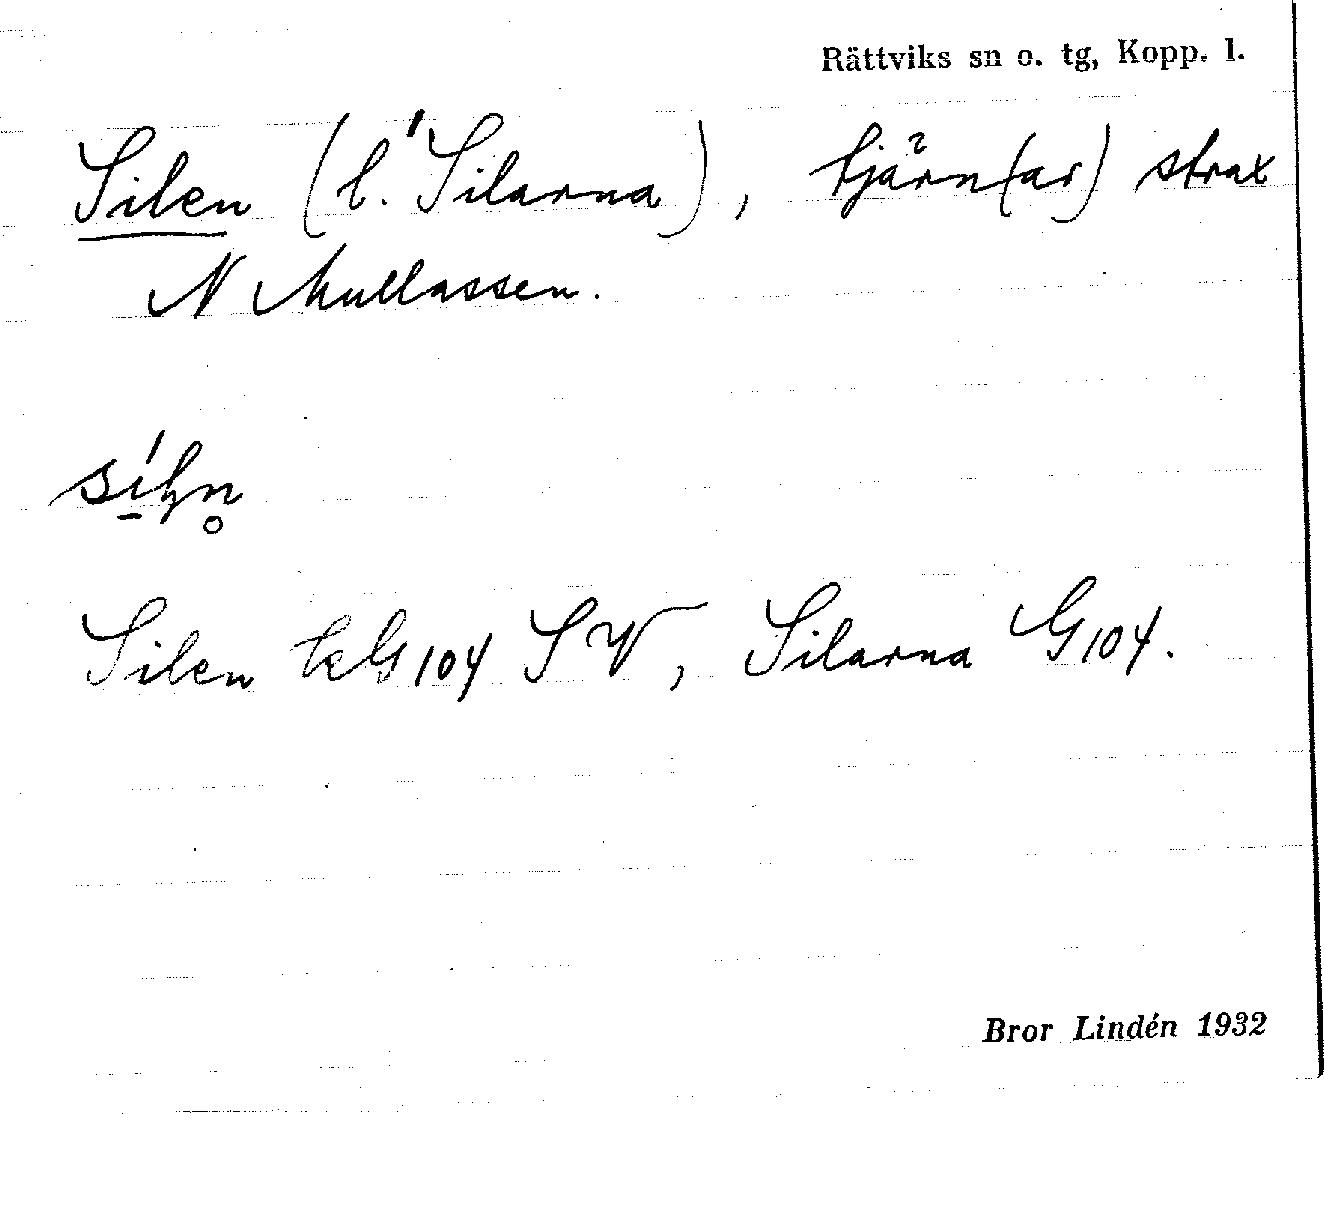 Rättviks sn o. tg, Kopp. l.
Silen (l. Silarna), tjärn(ar) strax
N Mullassen.
Silen G104 SV, Silarna G104.
Bror Lindén 1932